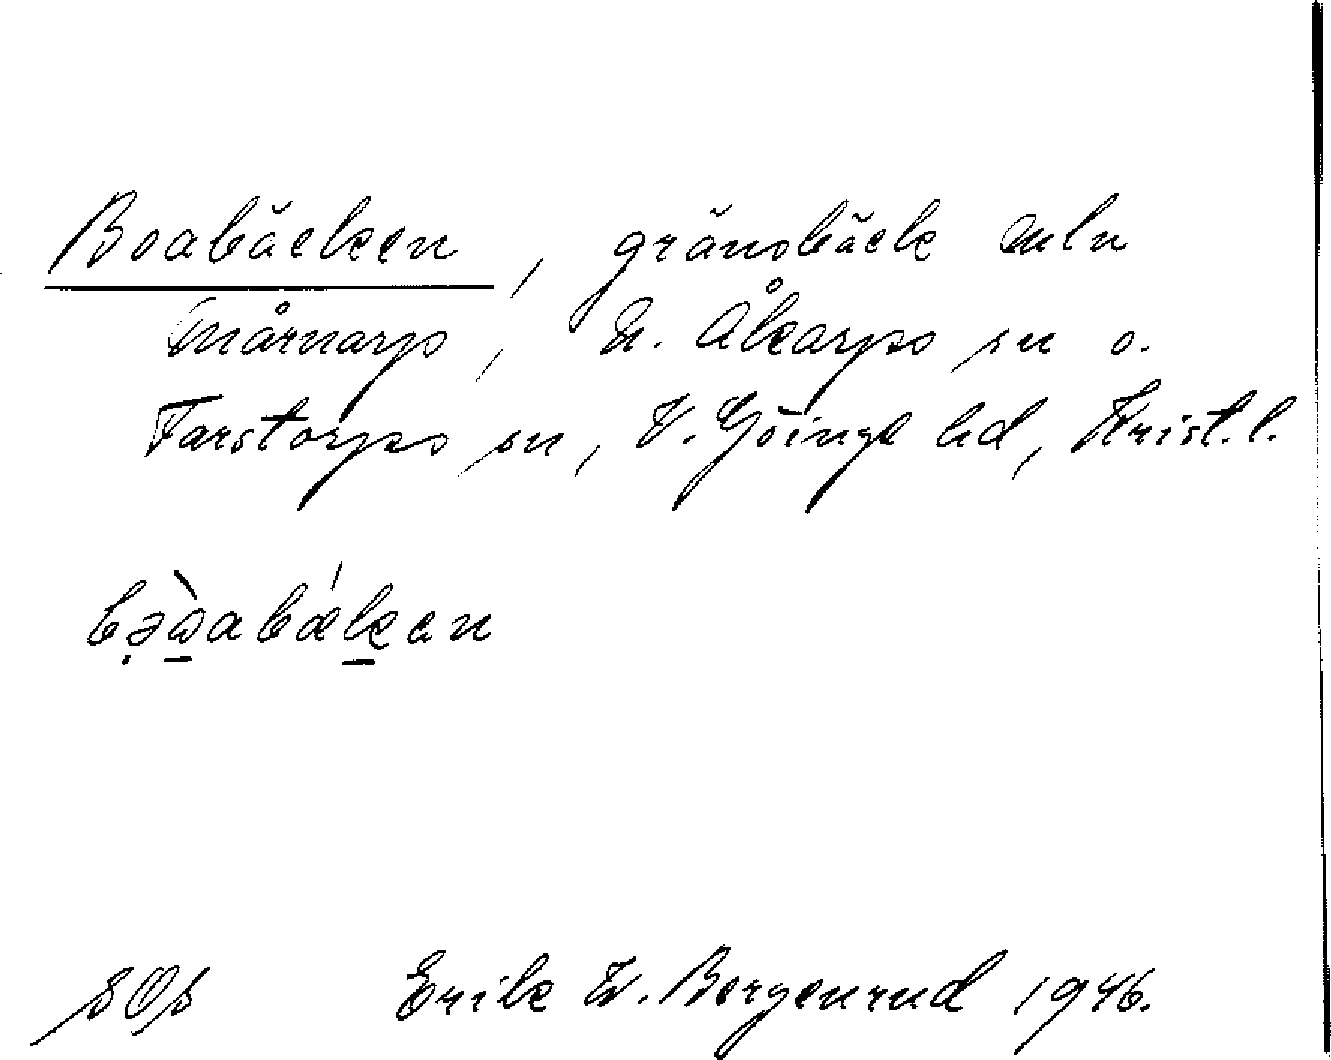 Boabäcken, gränsbäck mln
Mårnarp, N. Åkarps sn o.
Farstorps sn, V. Göinge hd, Krist. l.
bəωabækan
Erik W. Bergenrud 1946.